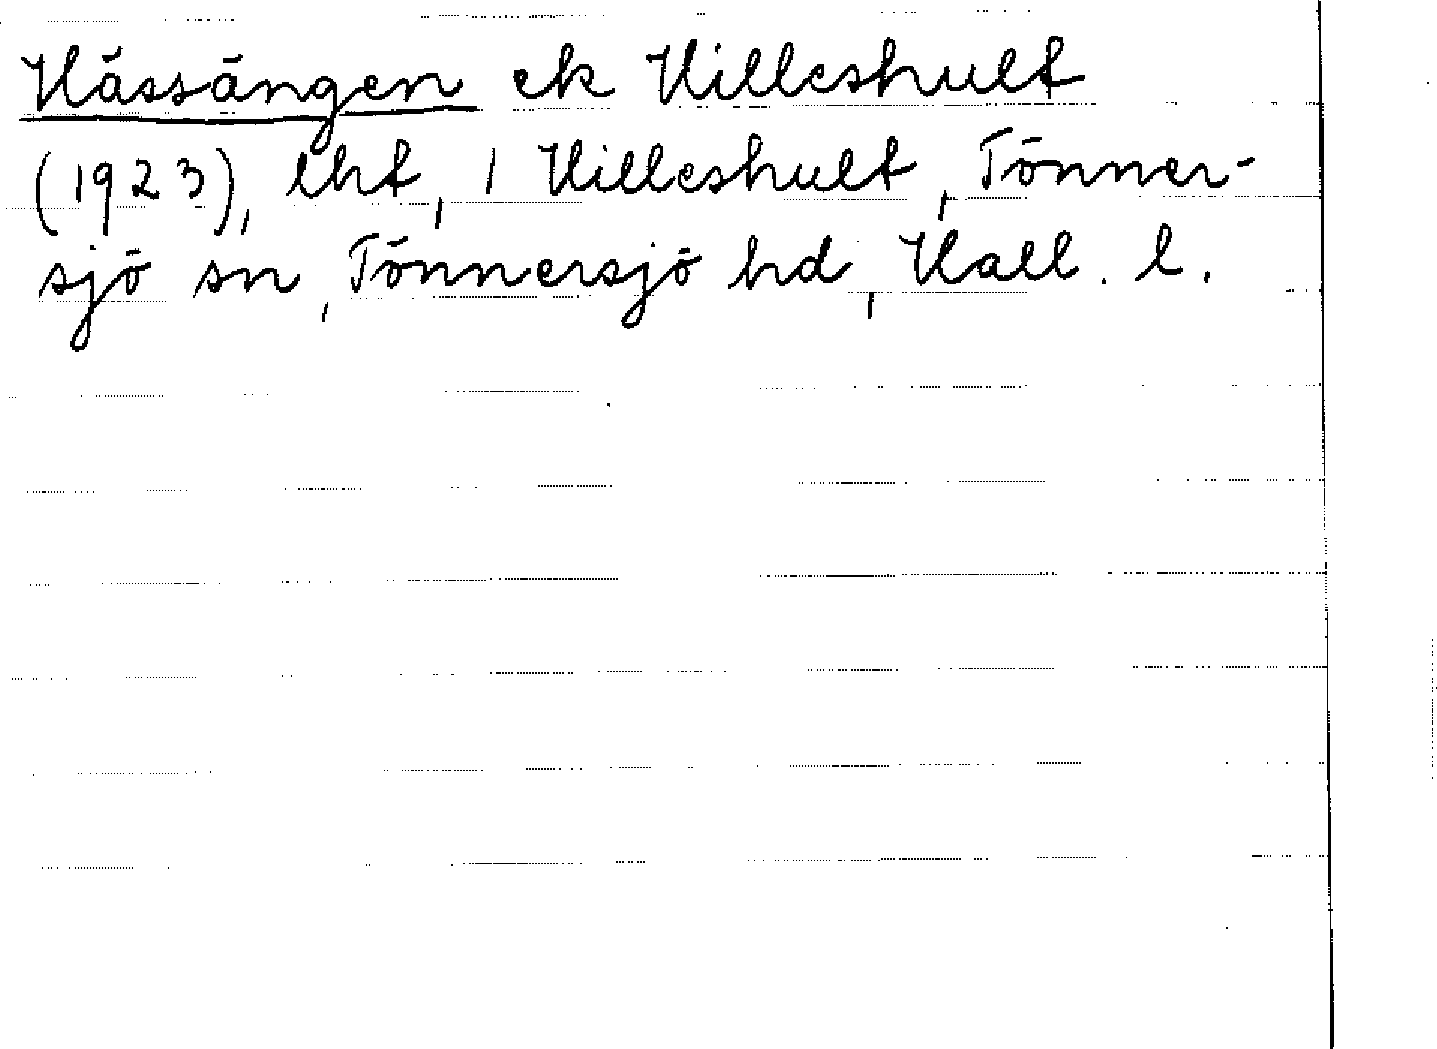 Hässängen ek Hilleshult
(1923), lht, 1 Hilleshult, Tönner-
sjö sn, Tönnersjö hd, Hall. l.